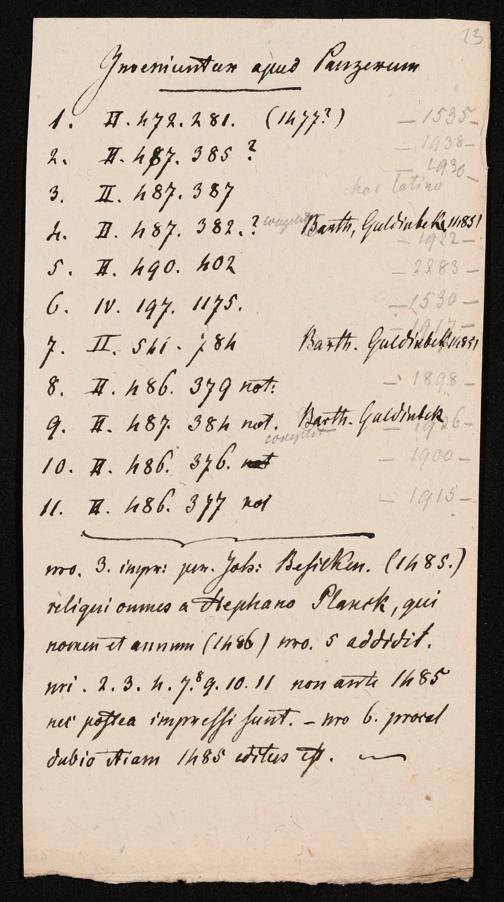 23
Inveniuntur apud Panzerum
1. II. 472. 281. (1477?) — 1535 —
2. II. 487. 385 ? — 1938 —
— 1930 —
3. II. 487. 387 char latino
4. II. 487. 382. ? Barth. Guldinbek 1485!
— 1922 —
5. II. 490. 402 — 2283 —
6. IV. 197. 1175. — 1530 —
— 1917 —
7. II. 541. 784 Barth. Guldinbek 1485!
8. II. 486. 379 not: — 1898 —
9. II. 487. 384 not. Barth. Guldinbek
— 1926 —
10. II. 486. 376. not — 1900 —
11. II. 486. 377 not — 1915 —
nro. 3. impr: per. Joh: Besicken. (1485.)
reliqui omnes a Stephano Planck, qui
nomen et annum (1486) nro. 5 addidit.
nri. 2. 3. 4. 7. 8 9. 10. 11 non ante 1485
nec postea impressi sunt. – nro 6. procul
dubio etiam 1485 editus est.